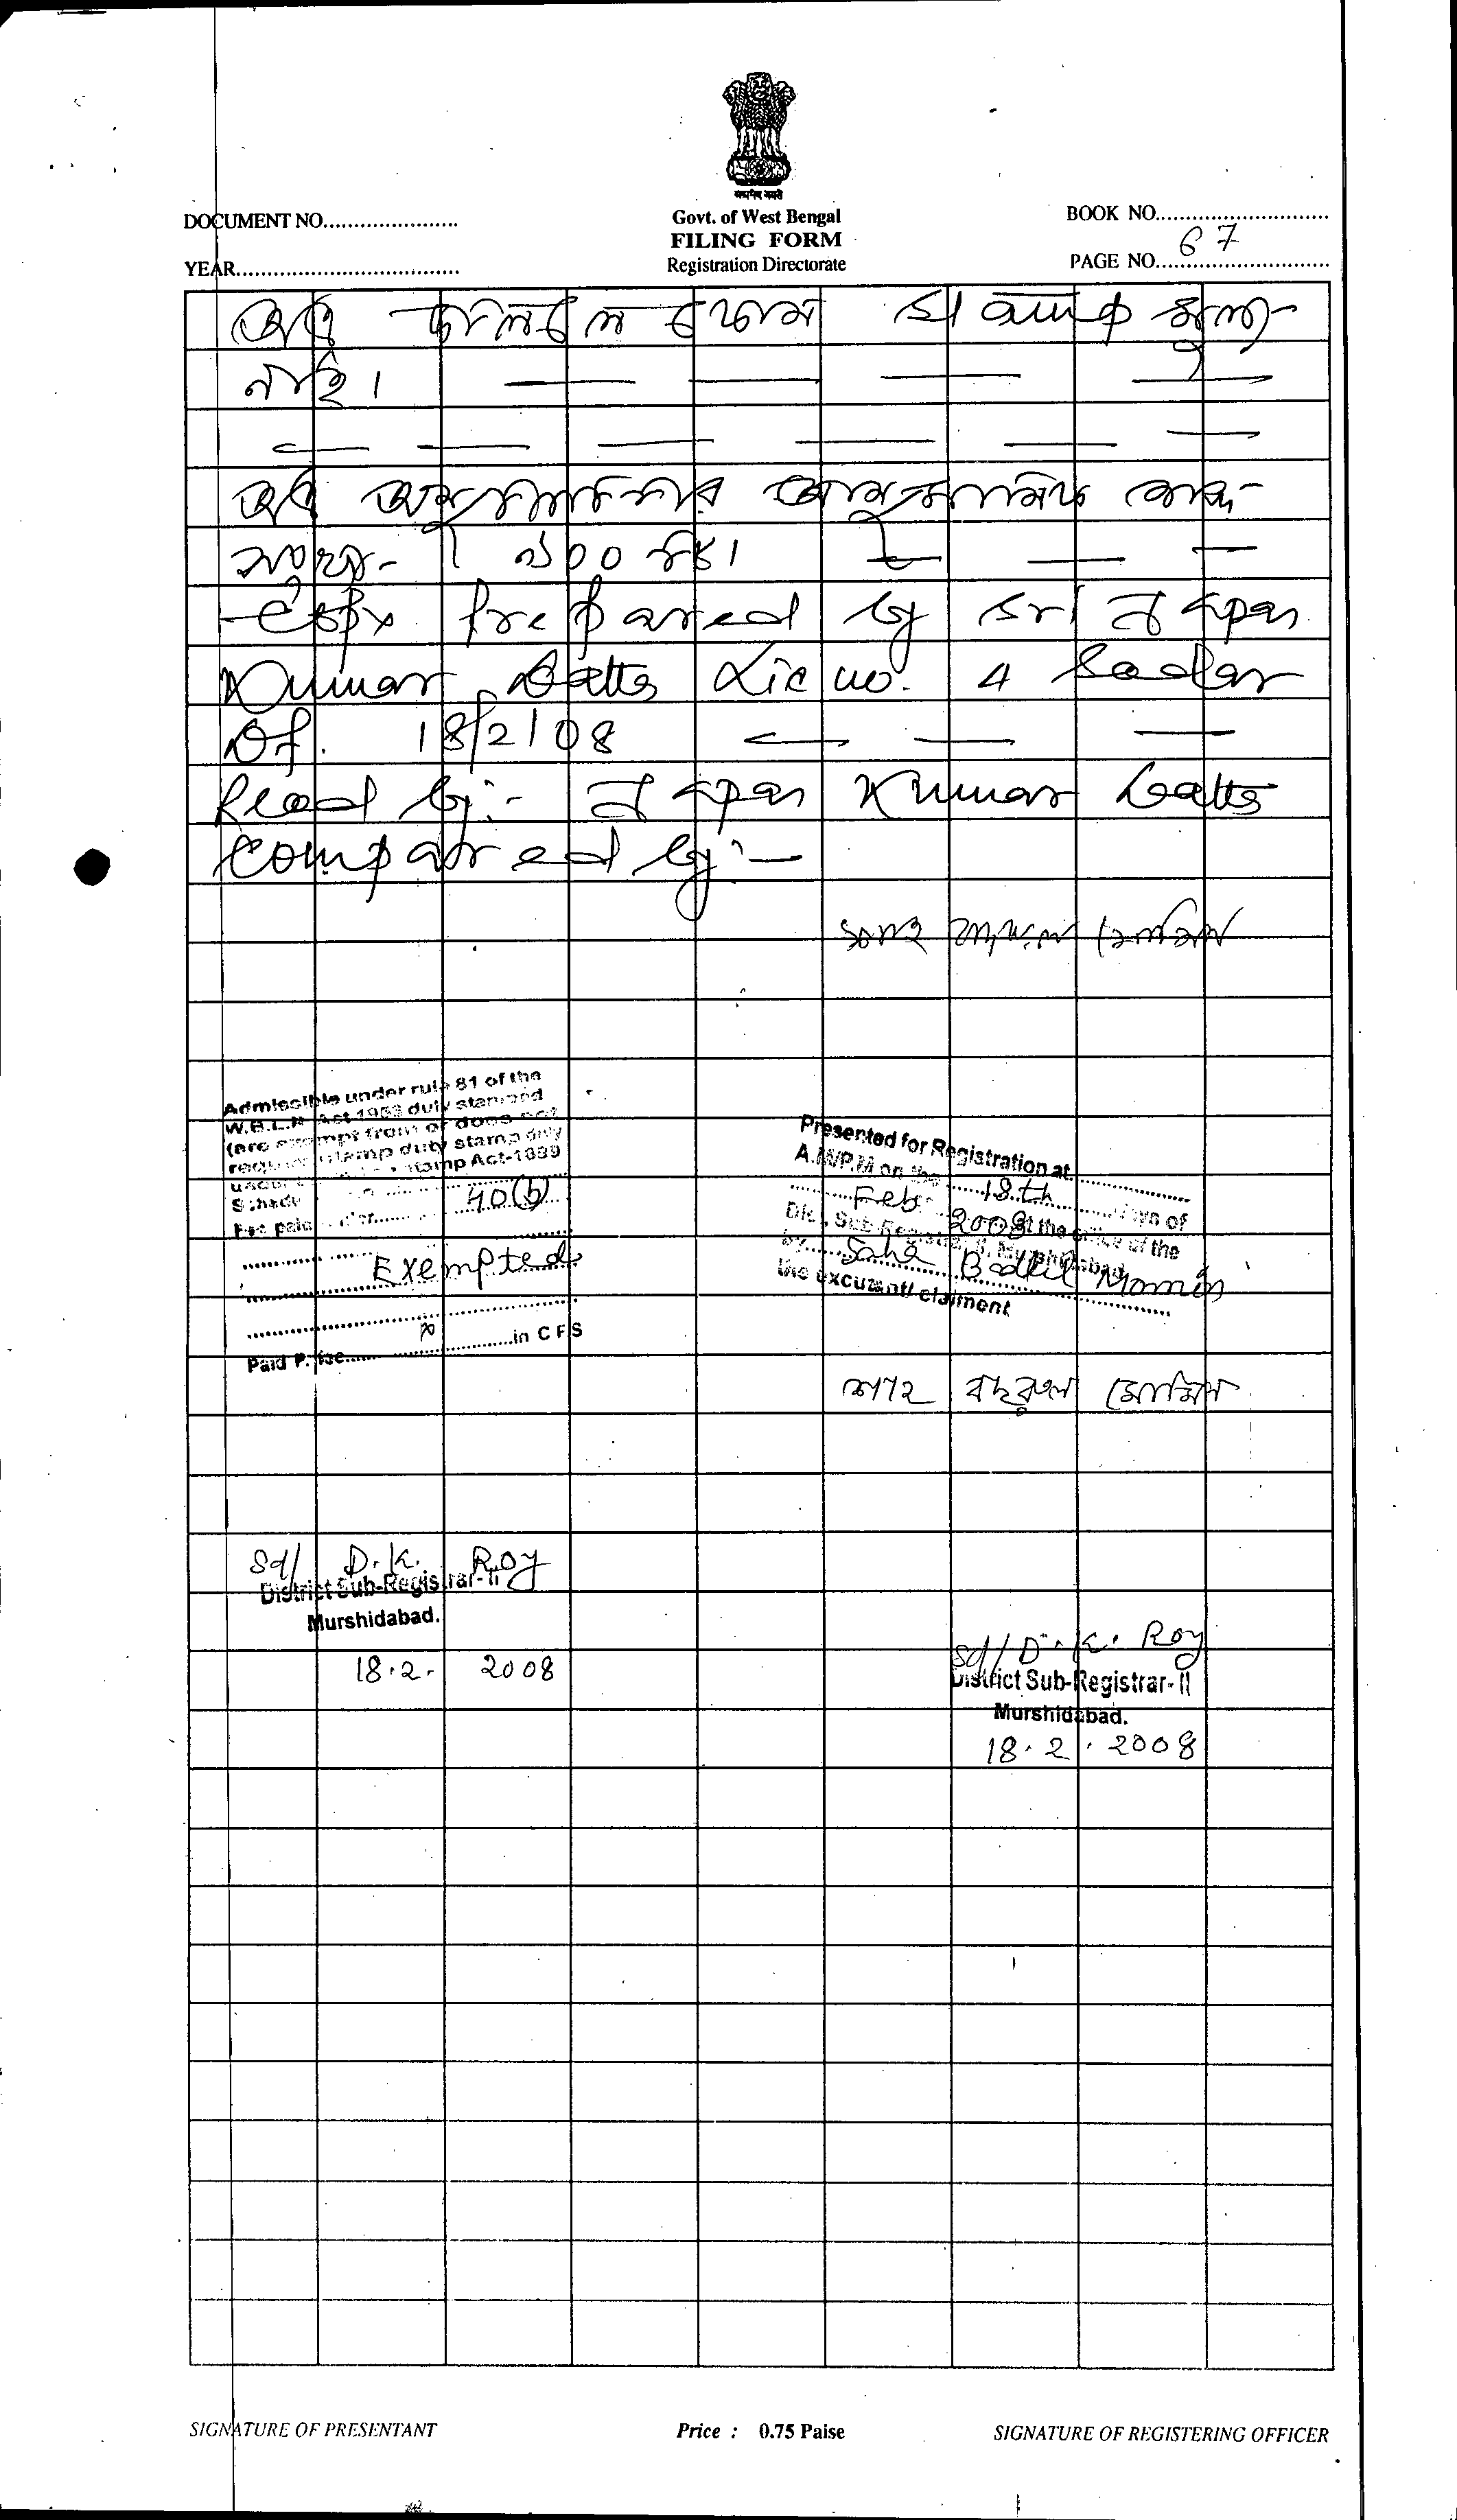 सत्यमेव जयते
Govt. of West Bengal
FILING FORM
Registration Directorate
DOCUMENT NO......................
YEAR.....................................
BOOK NO.............................
PAGE NO. 67
অত্র দলিলে কোন স্ট্যাম্প শুল্ক
নাই।
অত্র
১০০ টাকা
Copy prepared by Sri Tapan
Kumar Datta Lic no. 4 Sadar
Dt. 18/2/08
Read by:- Tapan Kumar Datta
Compared by:-
Admissible under rule 81 of the
W.B.L.R. Act 1953 duly stamped
(are exempt from or does not
require stamp duty stamp duty
under Stamp Act-1899
Schedule 40(b)
Fee paid
Exempted
Paid P. fee..............in C F S
Presented for Registration at
A.M/P.M on the 18th
Feb. 2008 at the office of the
Dist. Sub-Registrar-II, Murshidabad
by Saha Badrul Momin
the excutant/ claiment
শাহ বদরুল মোমিন
Sd/ D. K. Roy
District Sub-Registrar-II
Murshidabad.
18.2.2008
Sd/ D. K. Roy
District Sub-Registrar-II
Murshidabad.
18.2.2008
SIGNATURE OF PRESENTANT
Price : 0.75 Paise
SIGNATURE OF REGISTERING OFFICER